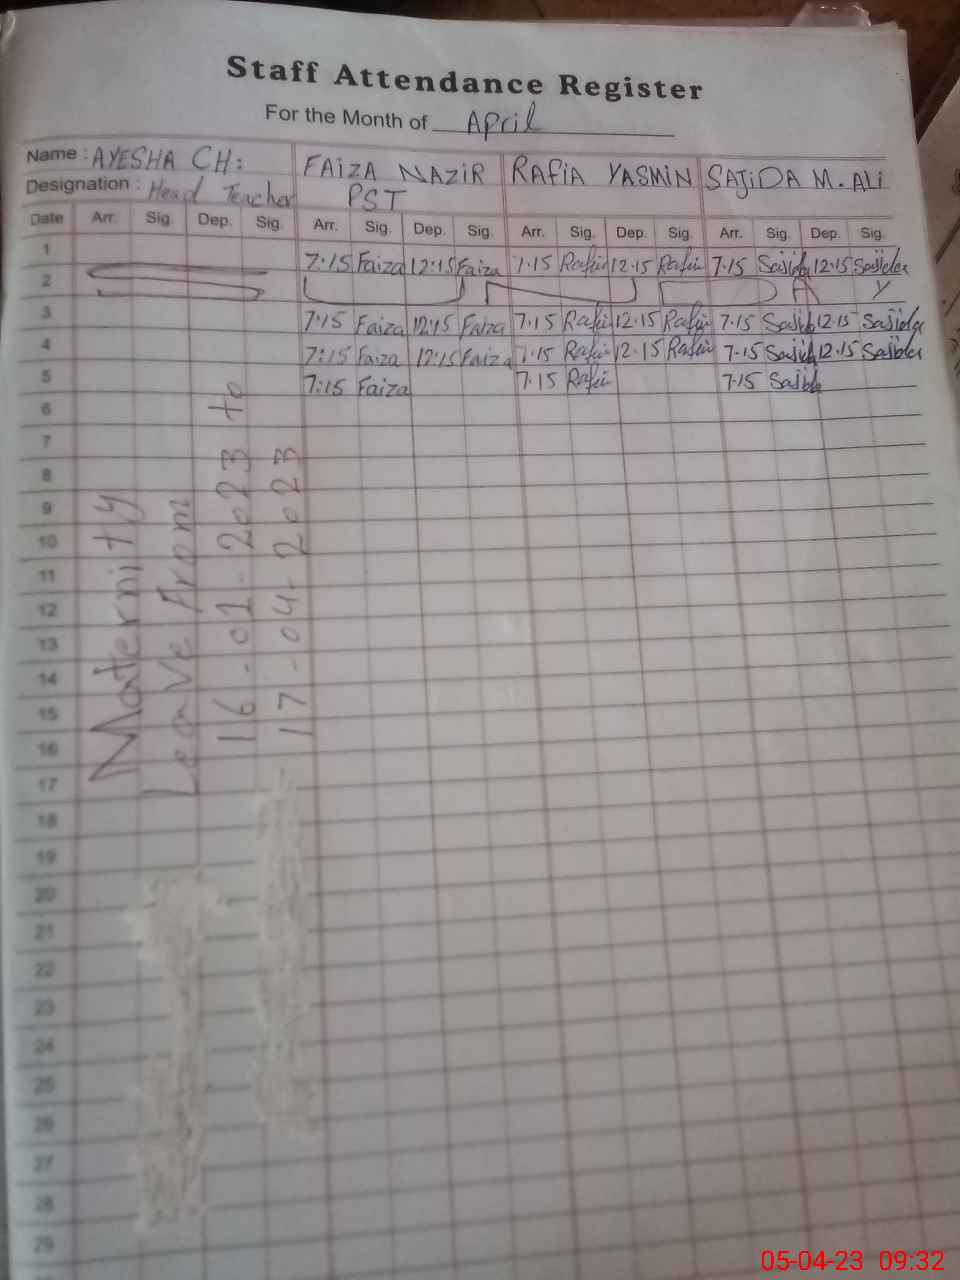 Staff Attendance Register
For the Month of April
Name : AYESHA CH: FAIZA NAZIR RAFIA YASMIN SAJIDA M. ALI
Designation : Head Teacher PST
Date Arr. Sig. Dep. Sig. Arr. Sig. Dep. Sig. Arr. Sig. Dep. Sig. Arr. Sig. Dep. Sig.
1 7:15 Faiza 12:15 Faiza 7.15 Rafia 12.15 Rafia 7.15 Sajida 12.15 Sajida
2 S U N D A Y
3 7:15 Faiza 12:15 Faiza 7.15 Rafia 12.15 Rafia 7.15 Sajida 12.15 Sajida
4 7:15 Faiza 12:15 Faiza 7.15 Rafia 12.15 Rafia 7.15 Sajida 12.15 Sajida
5 7:15 Faiza 7.15 Rafia 7.15 Sajida
6
7
8
9
10
11
12
13
14
15
16
17
18
19
20
21
22
23
24
25
26
27
28
29
Maternity
Leave From
16-01-2023 to
17-04-2023
05-04-23 09:32